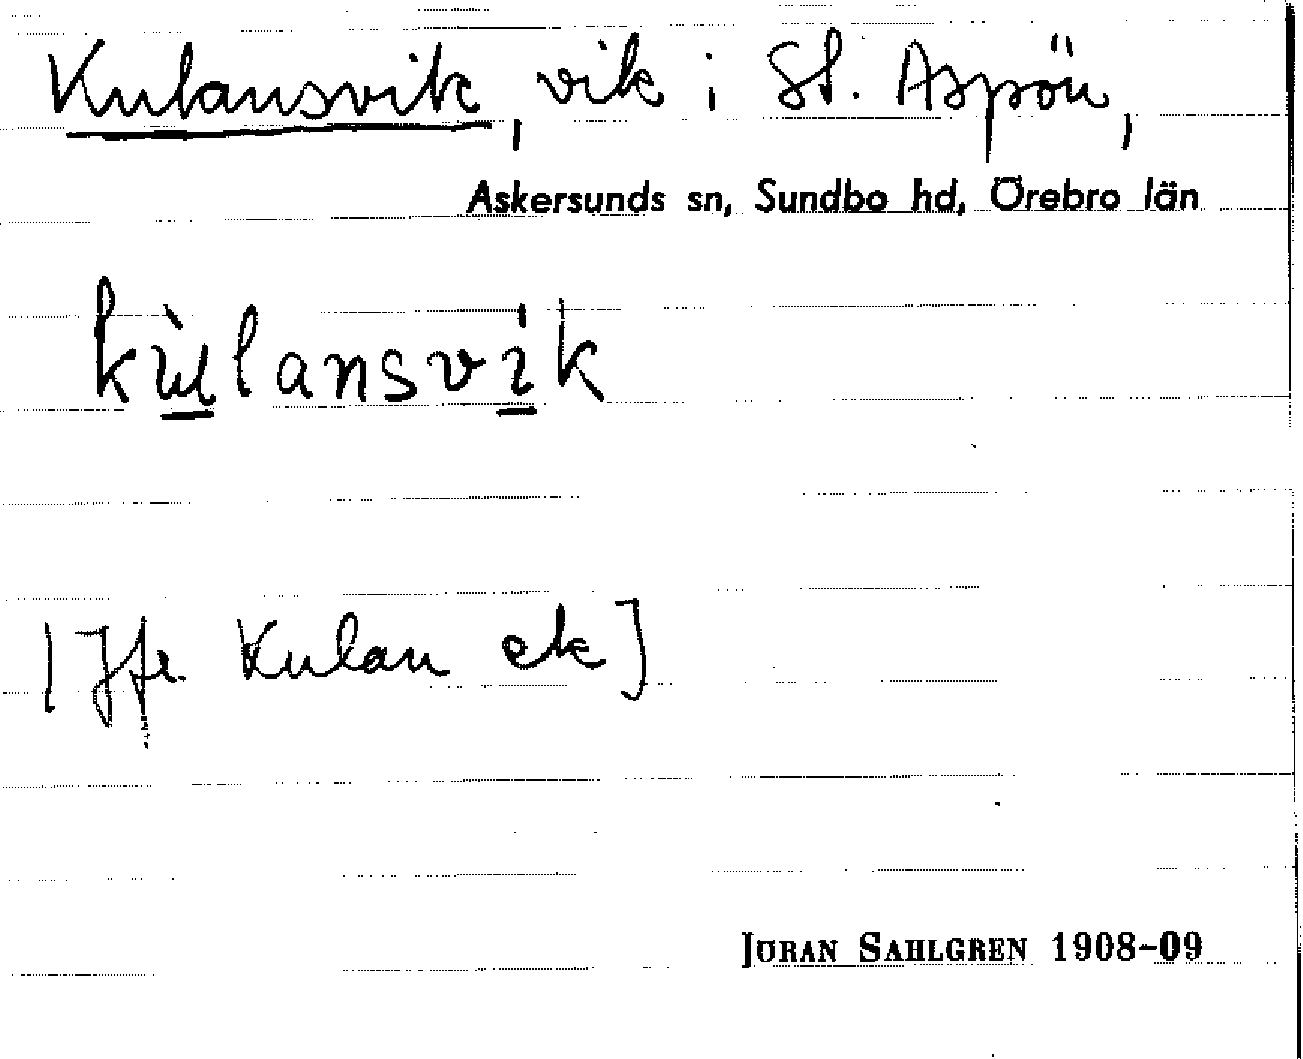 Kulansvik, vik i St. Aspön,
Askersunds sn, Sundbo hd, Örebro län
kùlansvik
[Jfr Kulan ek]
JÖRAN SAHLGREN 1908-09